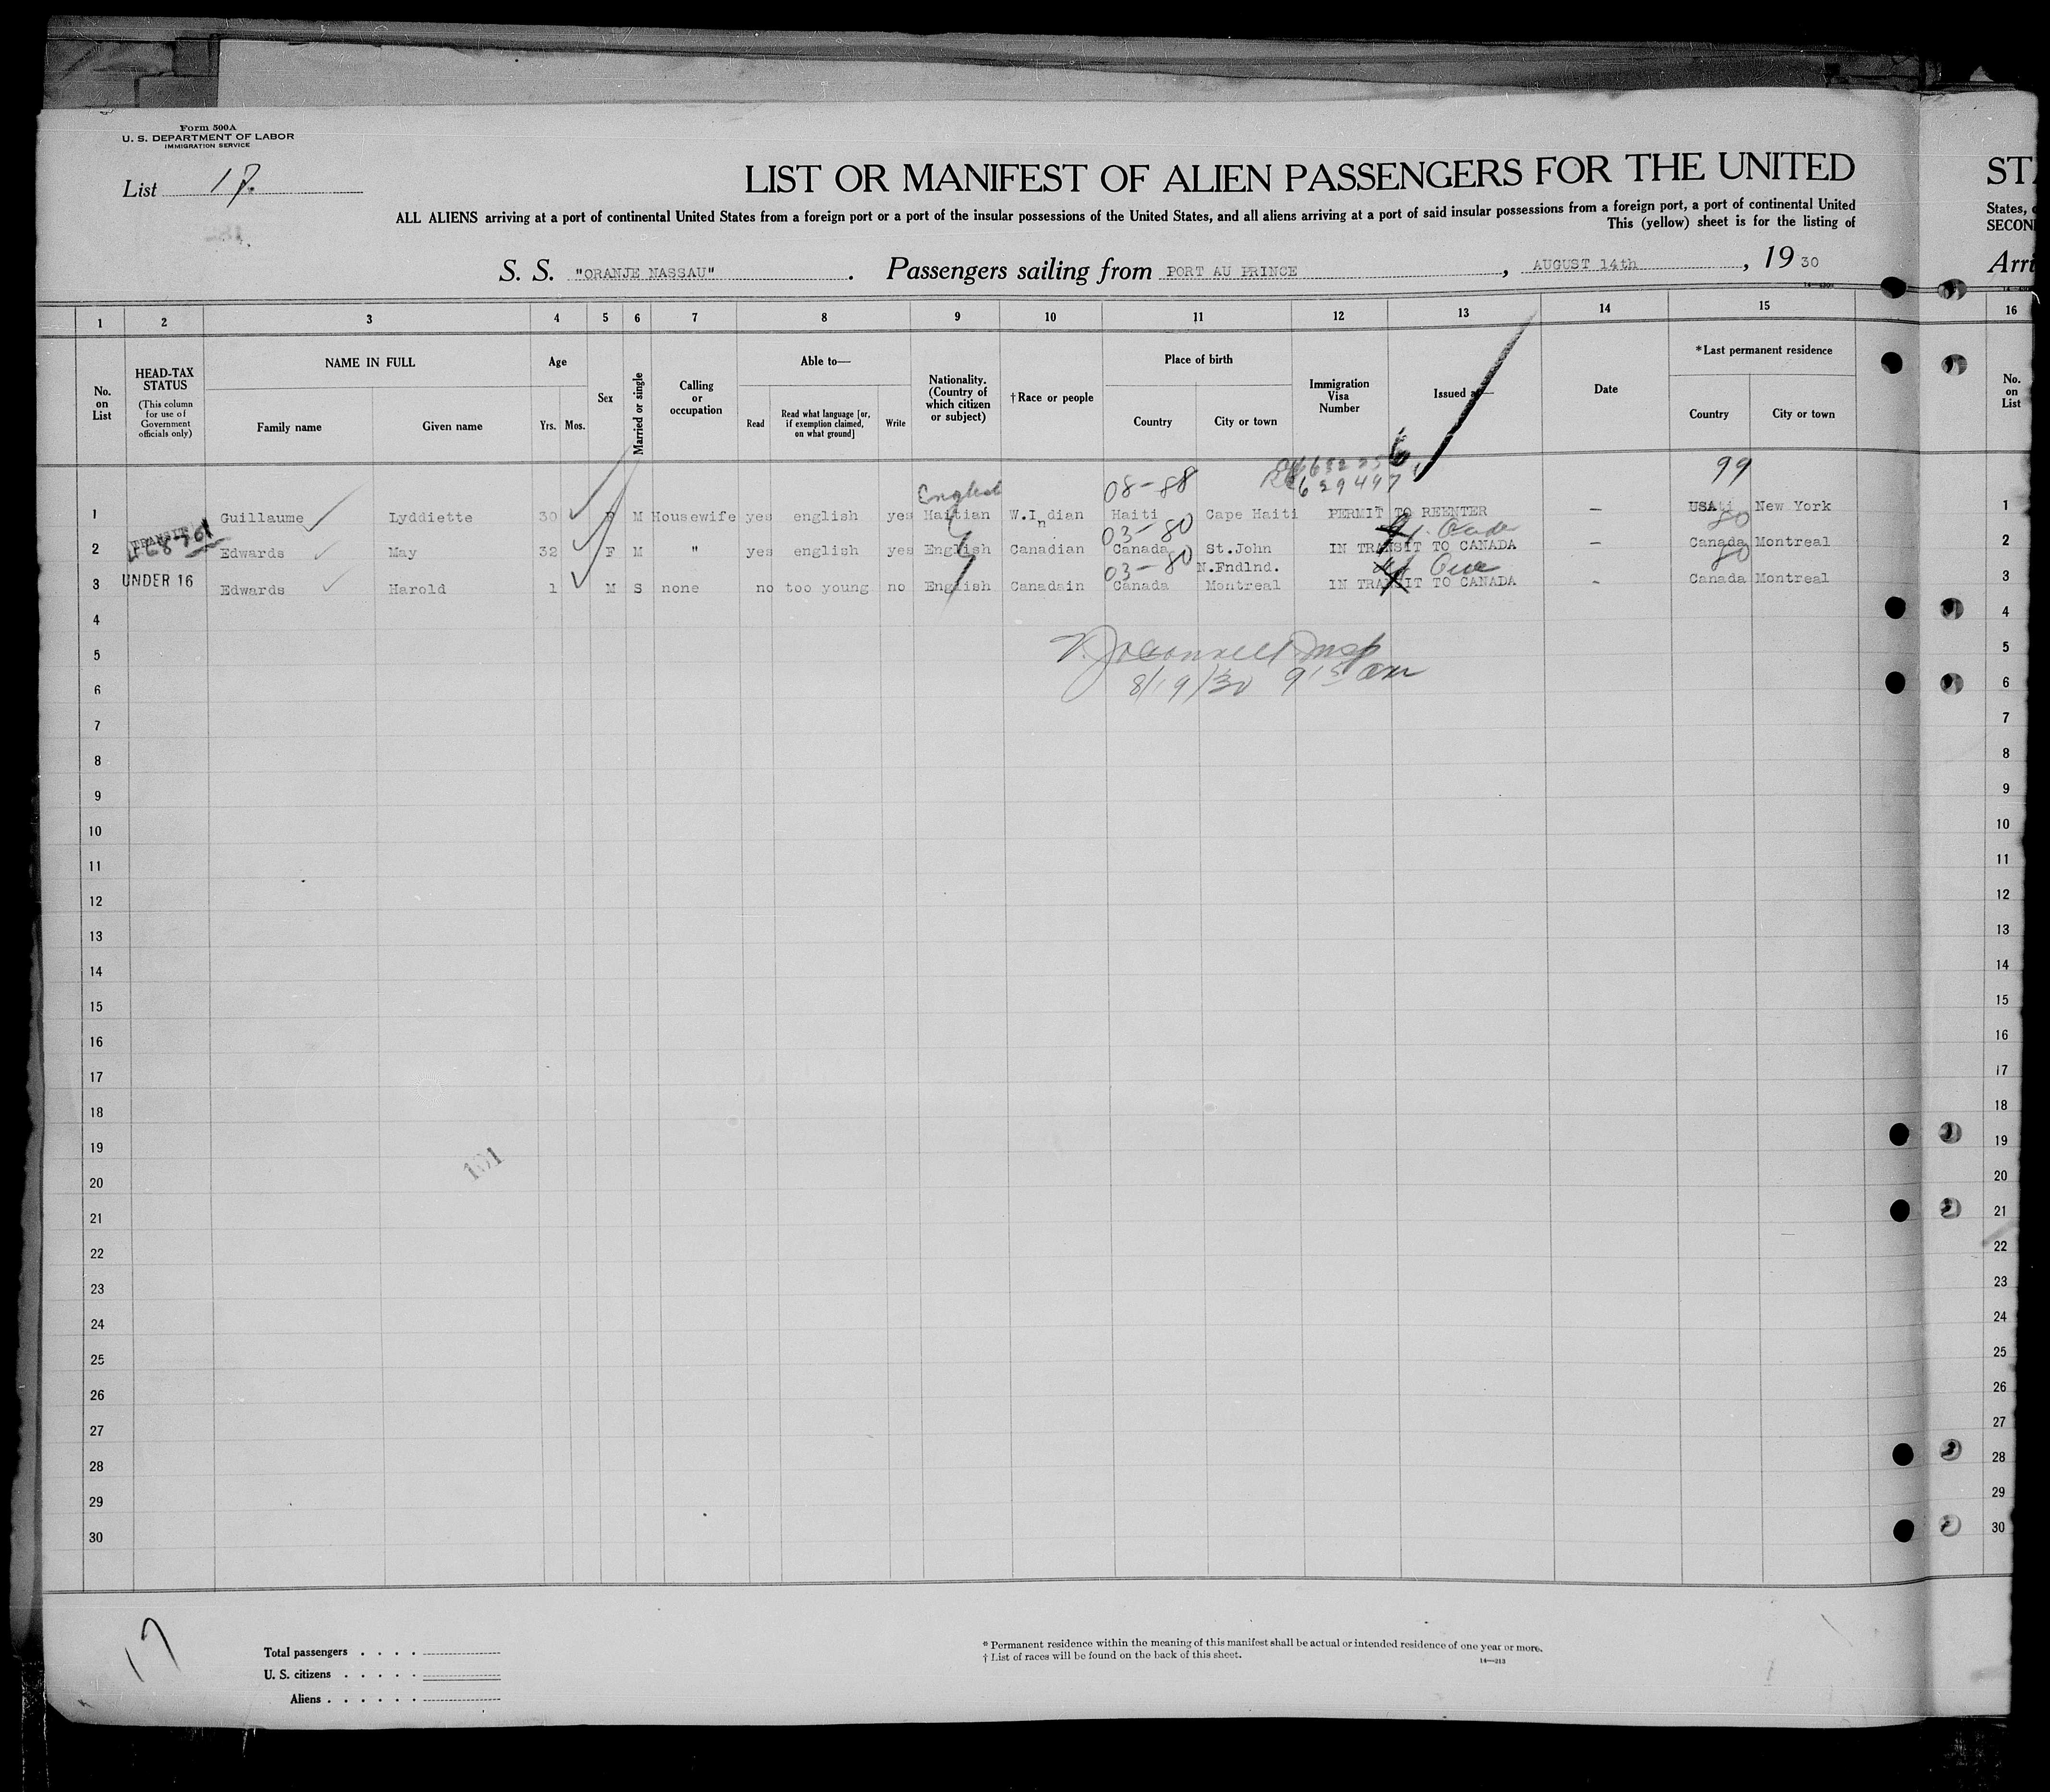 Form 500A
U. S. DEPARTMENT OF LABOR
IMMIGRATION SERVICE
List 17.
LIST OR MANIFEST OF ALIEN PASSENGERS FOR THE UNITED
ALL ALIENS arriving at a port of continental United States from a foreign port or a port of the insular possessions of the United States, and all aliens arriving at a port of said insular possessions from a foreign port, a port of continental United
This (yellow) sheet is for the listing of
S. S. "ORANJE NASSAU". Passengers sailing from PORT AU PRINCE, AUGUST 14th, 19 30
STA
States,
SECON
Arri
1 2 3 4 5 6 7 8 9 10 11 12 13 14 15 16
No. on List
HEAD-TAX STATUS (This column for use of Government officials only)
NAME IN FULL
Family name Given name
Age
Yrs. Mos.
Sex
Married or single
Calling or occupation
Able to—
Read
Read what language [or, if exemption claimed, on what ground]
Write
Nationality. (Country of which citizen or subject)
† Race or people
Place of birth
Country City or town
Immigration Visa Number
Issued at—
Date
*Last permanent residence
Country City or town
No. on List
99
08-88
629497
English
1 Guillaume Lyddiette 30 F M Housewife yes english yes Haitian W.Indian Haiti Cape Haiti PERMIT TO REENTER — USA New York 1
03-80 80
TRANSIT
2 Edwards May 32 F M " yes english yes English Canadian Canada St.John IN TRANSIT TO CANADA — Canada Montreal 2
N.Fndlnd.
03-80 80
UNDER 16
3 Edwards Harold 1 M S none no too young no English Canadain Canada Montreal IN TRANSIT TO CANADA - Canada Montreal 3
4 4
5 5
6 6
8/19/30 915 am
7 7
8 8
9 9
10 10
11 11
12 12
13 13
14 14
15 15
16 16
17 17
18 18
19 19
101
20 20
21 21
22 22
23 23
24 24
25 25
26 26
27 27
28 28
29 29
30 30
17
Total passengers . . . .
U. S. citizens . . . . .
Aliens . . . . . .
* Permanent residence within the meaning of this manifest shall be actual or intended residence of one year or more.
† List of races will be found on the back of this sheet.
14—213